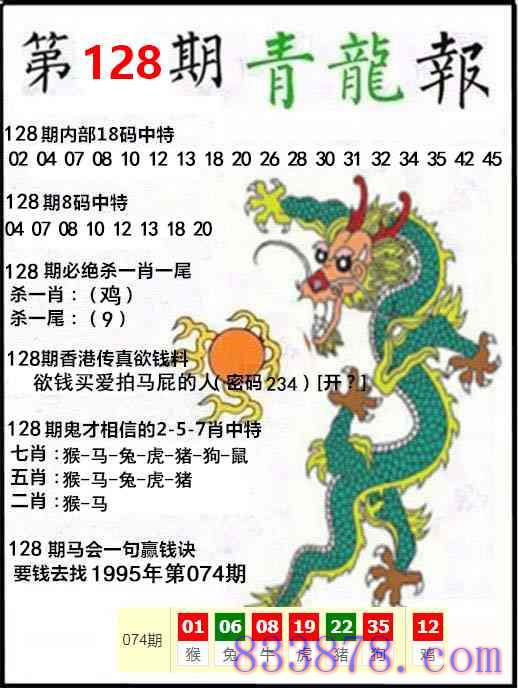 第128期青龍報
128期内部18码中特
02 04 07 08 10 12 13 18 20 26 28 30 31 32 34 35 42 45
128期8码中特
04 07 08 10 12 13 18 20
128期必绝杀一肖一尾
杀一肖：（鸡）
杀一尾：（9）
128期香港传真欲钱料
欲钱买爱拍马屁的人(密码234)[开？]
128期鬼才相信的2-5-7肖中特
七肖：猴-马-兔-虎-猪-狗-鼠
五肖：猴-马-兔-虎-猪
二肖：猴-马
128期马会一句赢钱诀
要钱去找1995年第074期
074期 01 06 08 19 22 35 12
猴 兔 牛 虎 猪 狗 鸡
833878.com